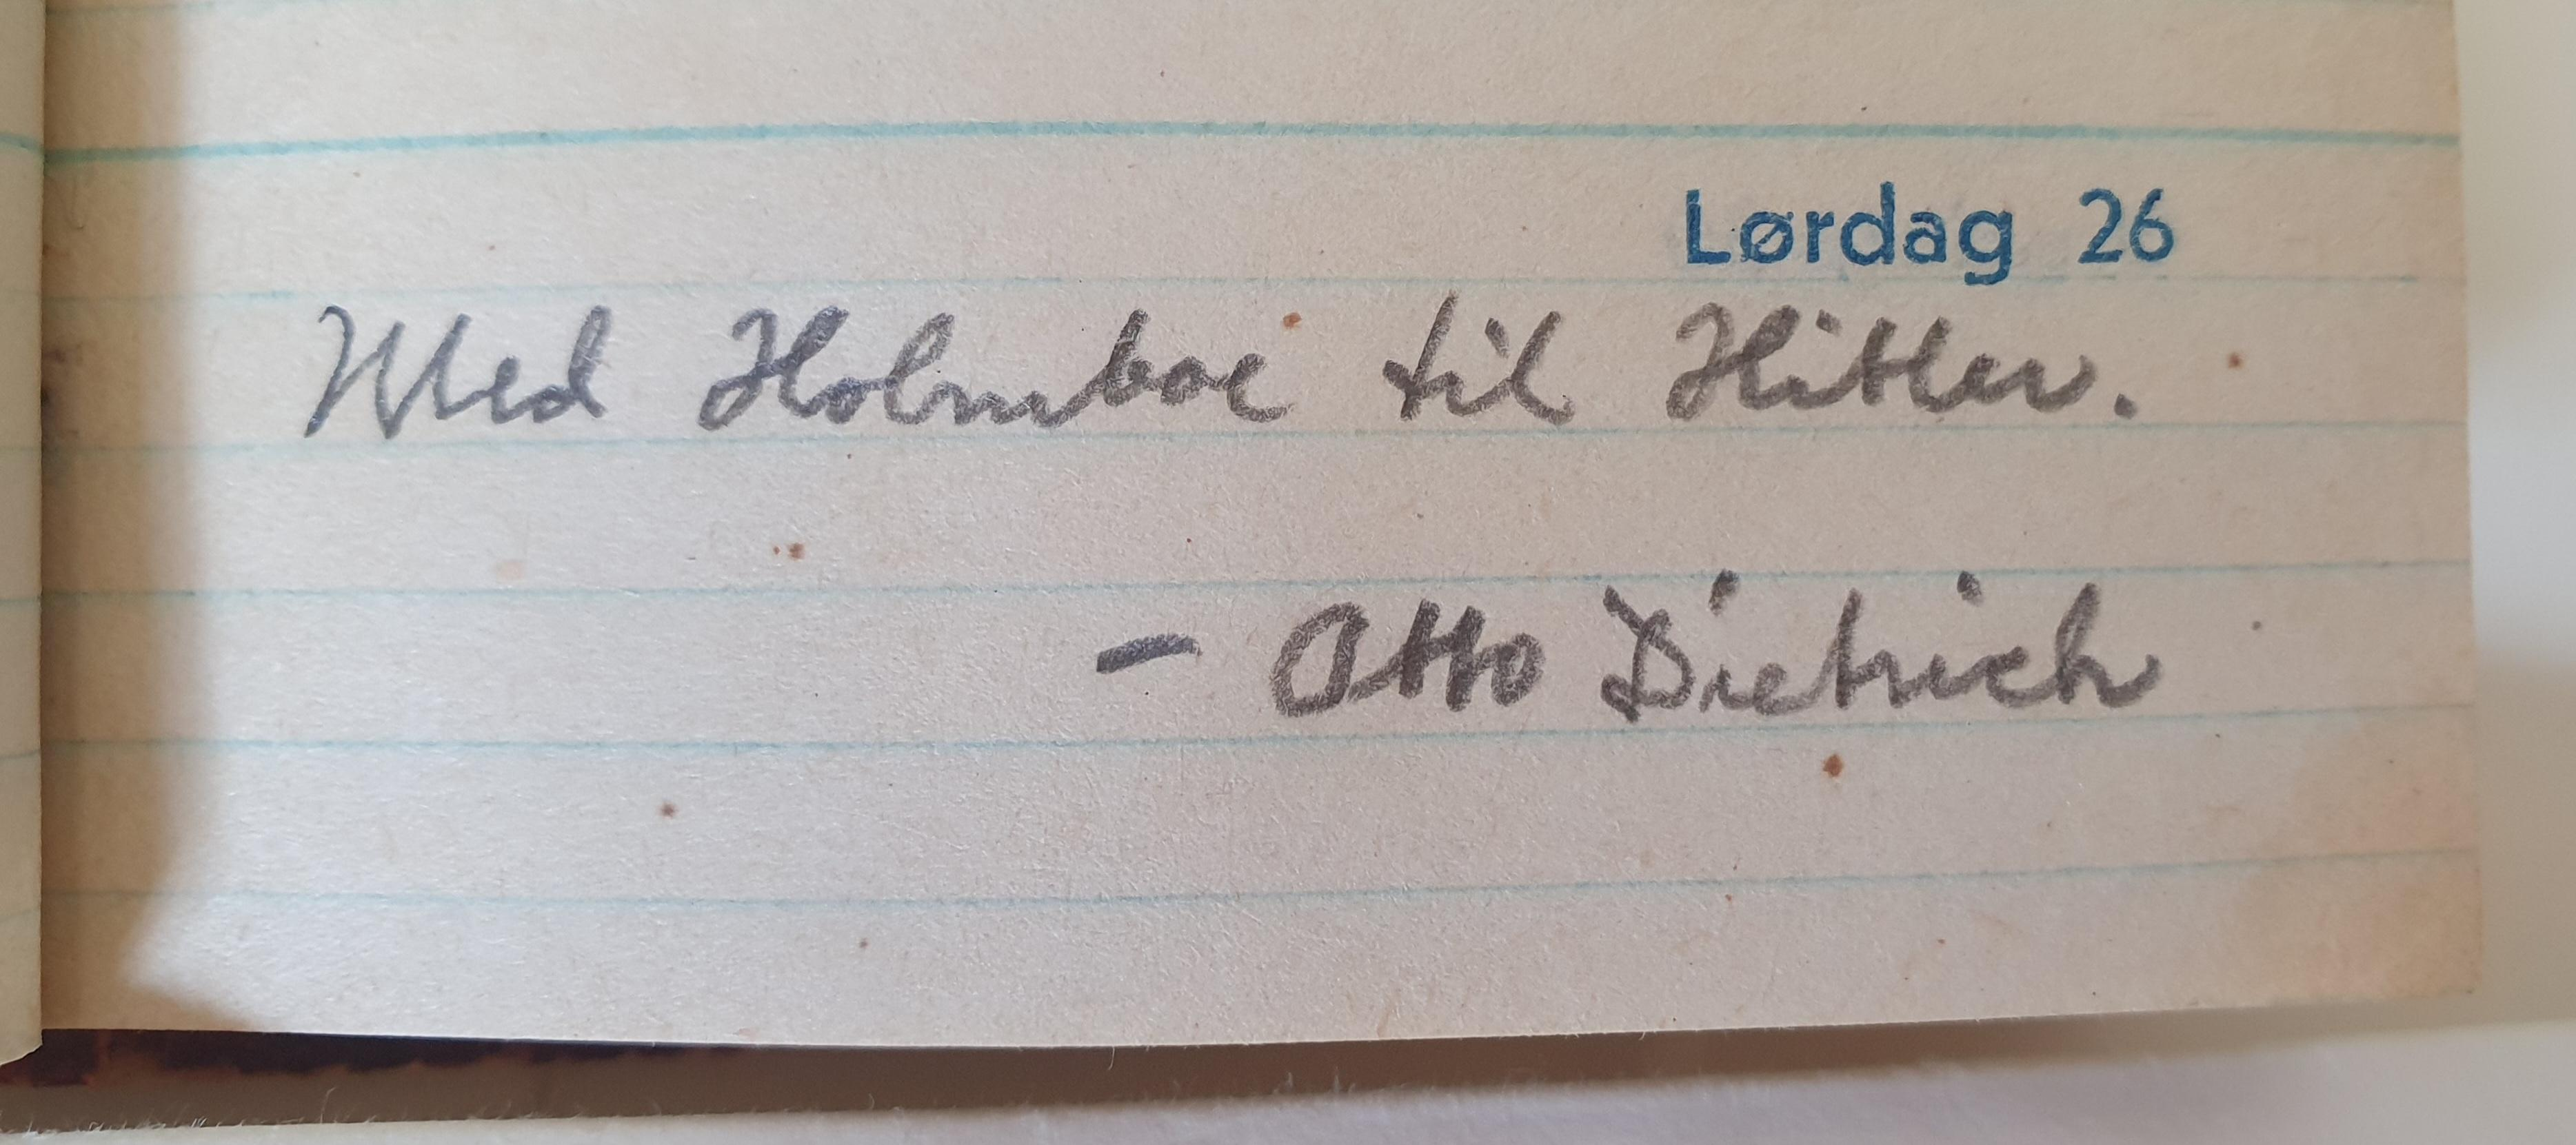 Lørdag 26
Med Holmboe til Hitler.
- Otto Dietrich